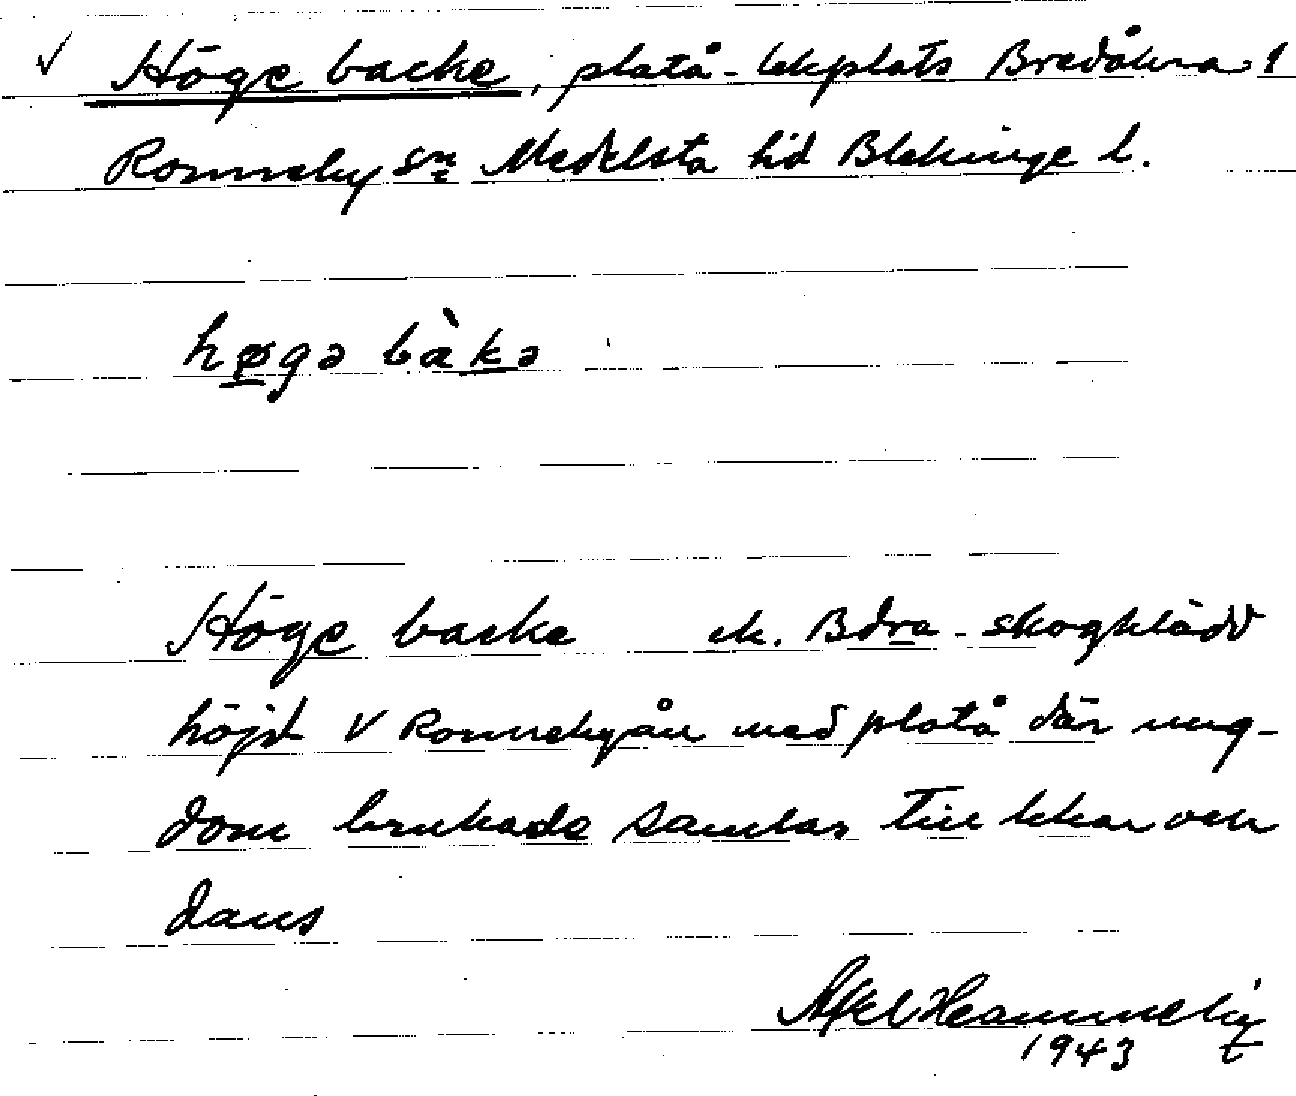 ✓ Höge backe, platå - lekplats Bredåkra 1
Ronneby sn Medelsta hd Blekinge l.
høgə bàkə
Höge backe ek. Bdra - skogklädd
höjd V Ronnebyån med platå där ung-
dom brukade samlas till lekar och
dans
Axel
1943